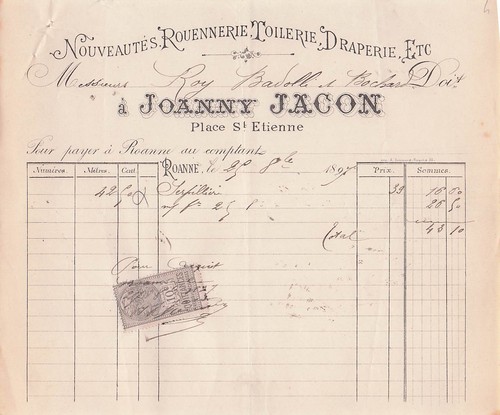 NOUVEAUTÉS, ROUENNERIE, TOILERIE, DRAPERIE, ETC
Messieurs Roy Badolle et Bochard Doit
à JOANNY JACON
Place St Etienne
Pour payer à Roanne au comptant
ROANNE, le 25 8bre 1897
Numéros. Mètres. Cent. Prix. Sommes.
42 50 Serpillier 39 16 60
26 50
Total 43 10
Pour acquit